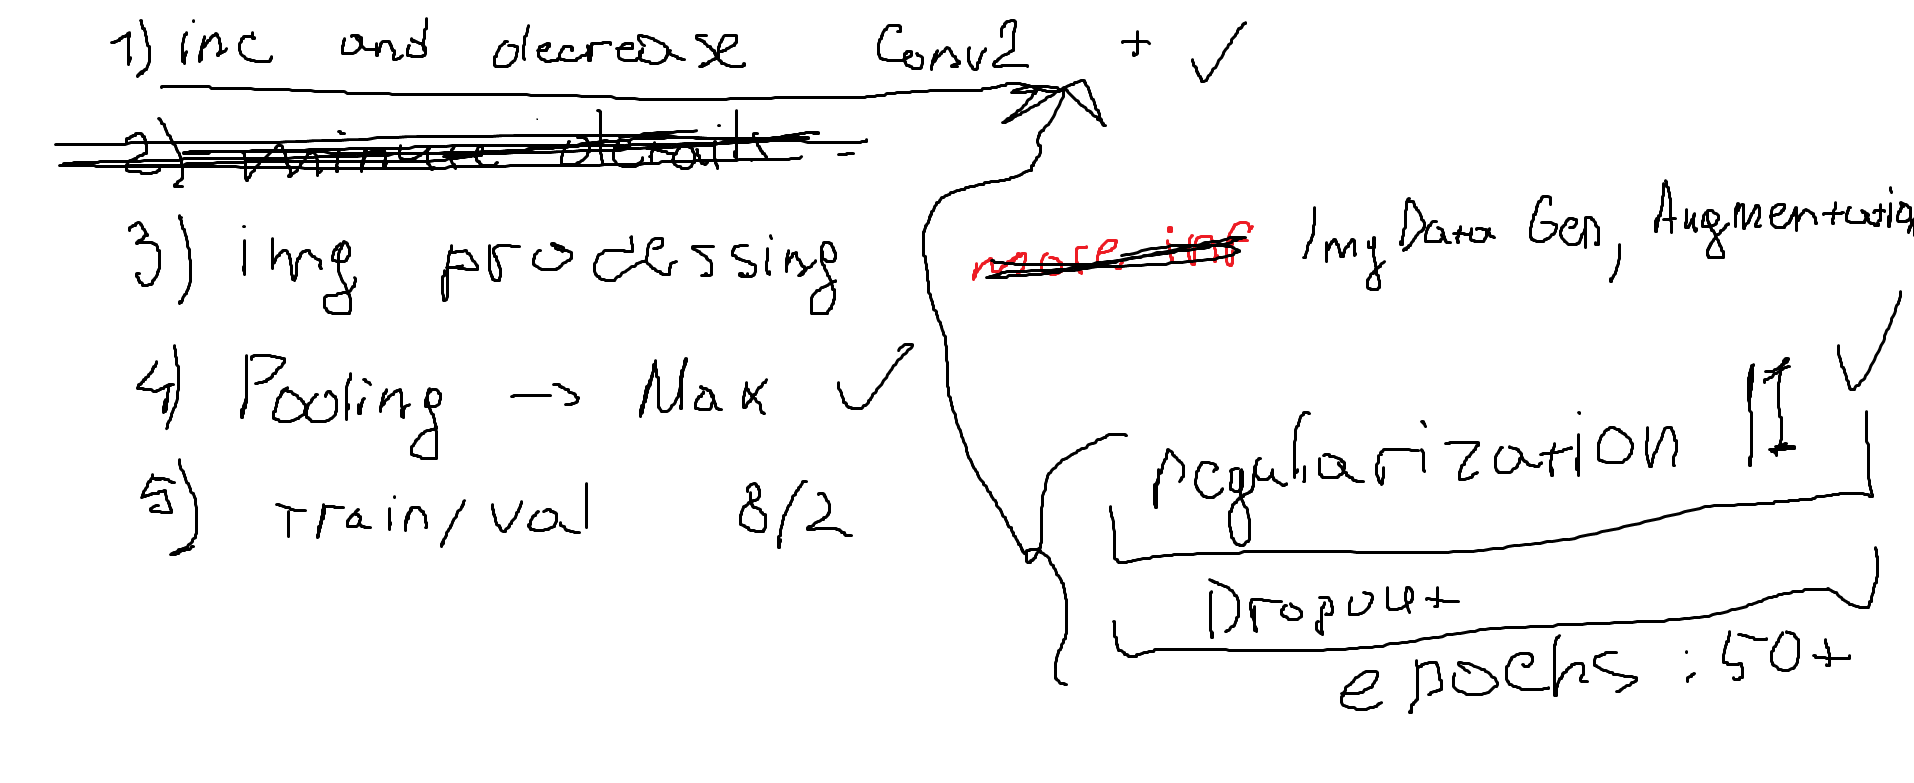 1) inc and decrease Conv2 + ✓
2) minute details -
3) img processing more inf Img Data Gen, Augmentation
4) Pooling → Max ✓
5) Train/val 8/2
regularization l1 ✓
Dropout
epochs : 50+